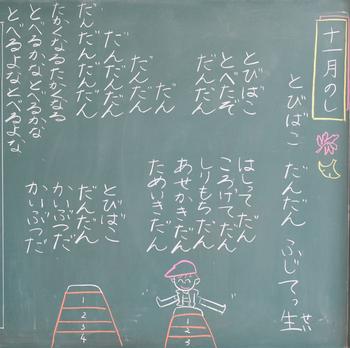 十一月のし
とびばこ だんだん ふじてつ生
せい
とびばこ
とべたぞ
だんだん
だん
だんだん
だんだんだん
だんだんだんだん
たかくなるたかくなる
とべるかなとべるかな
とべるよなとべるよな
はしってだん
ころげてだん
しりもちだん
あせかきだん
ためいきだん
とびばこ
だんだん
かいぶつだ
かいぶつだ
2
3
1
2
3
4